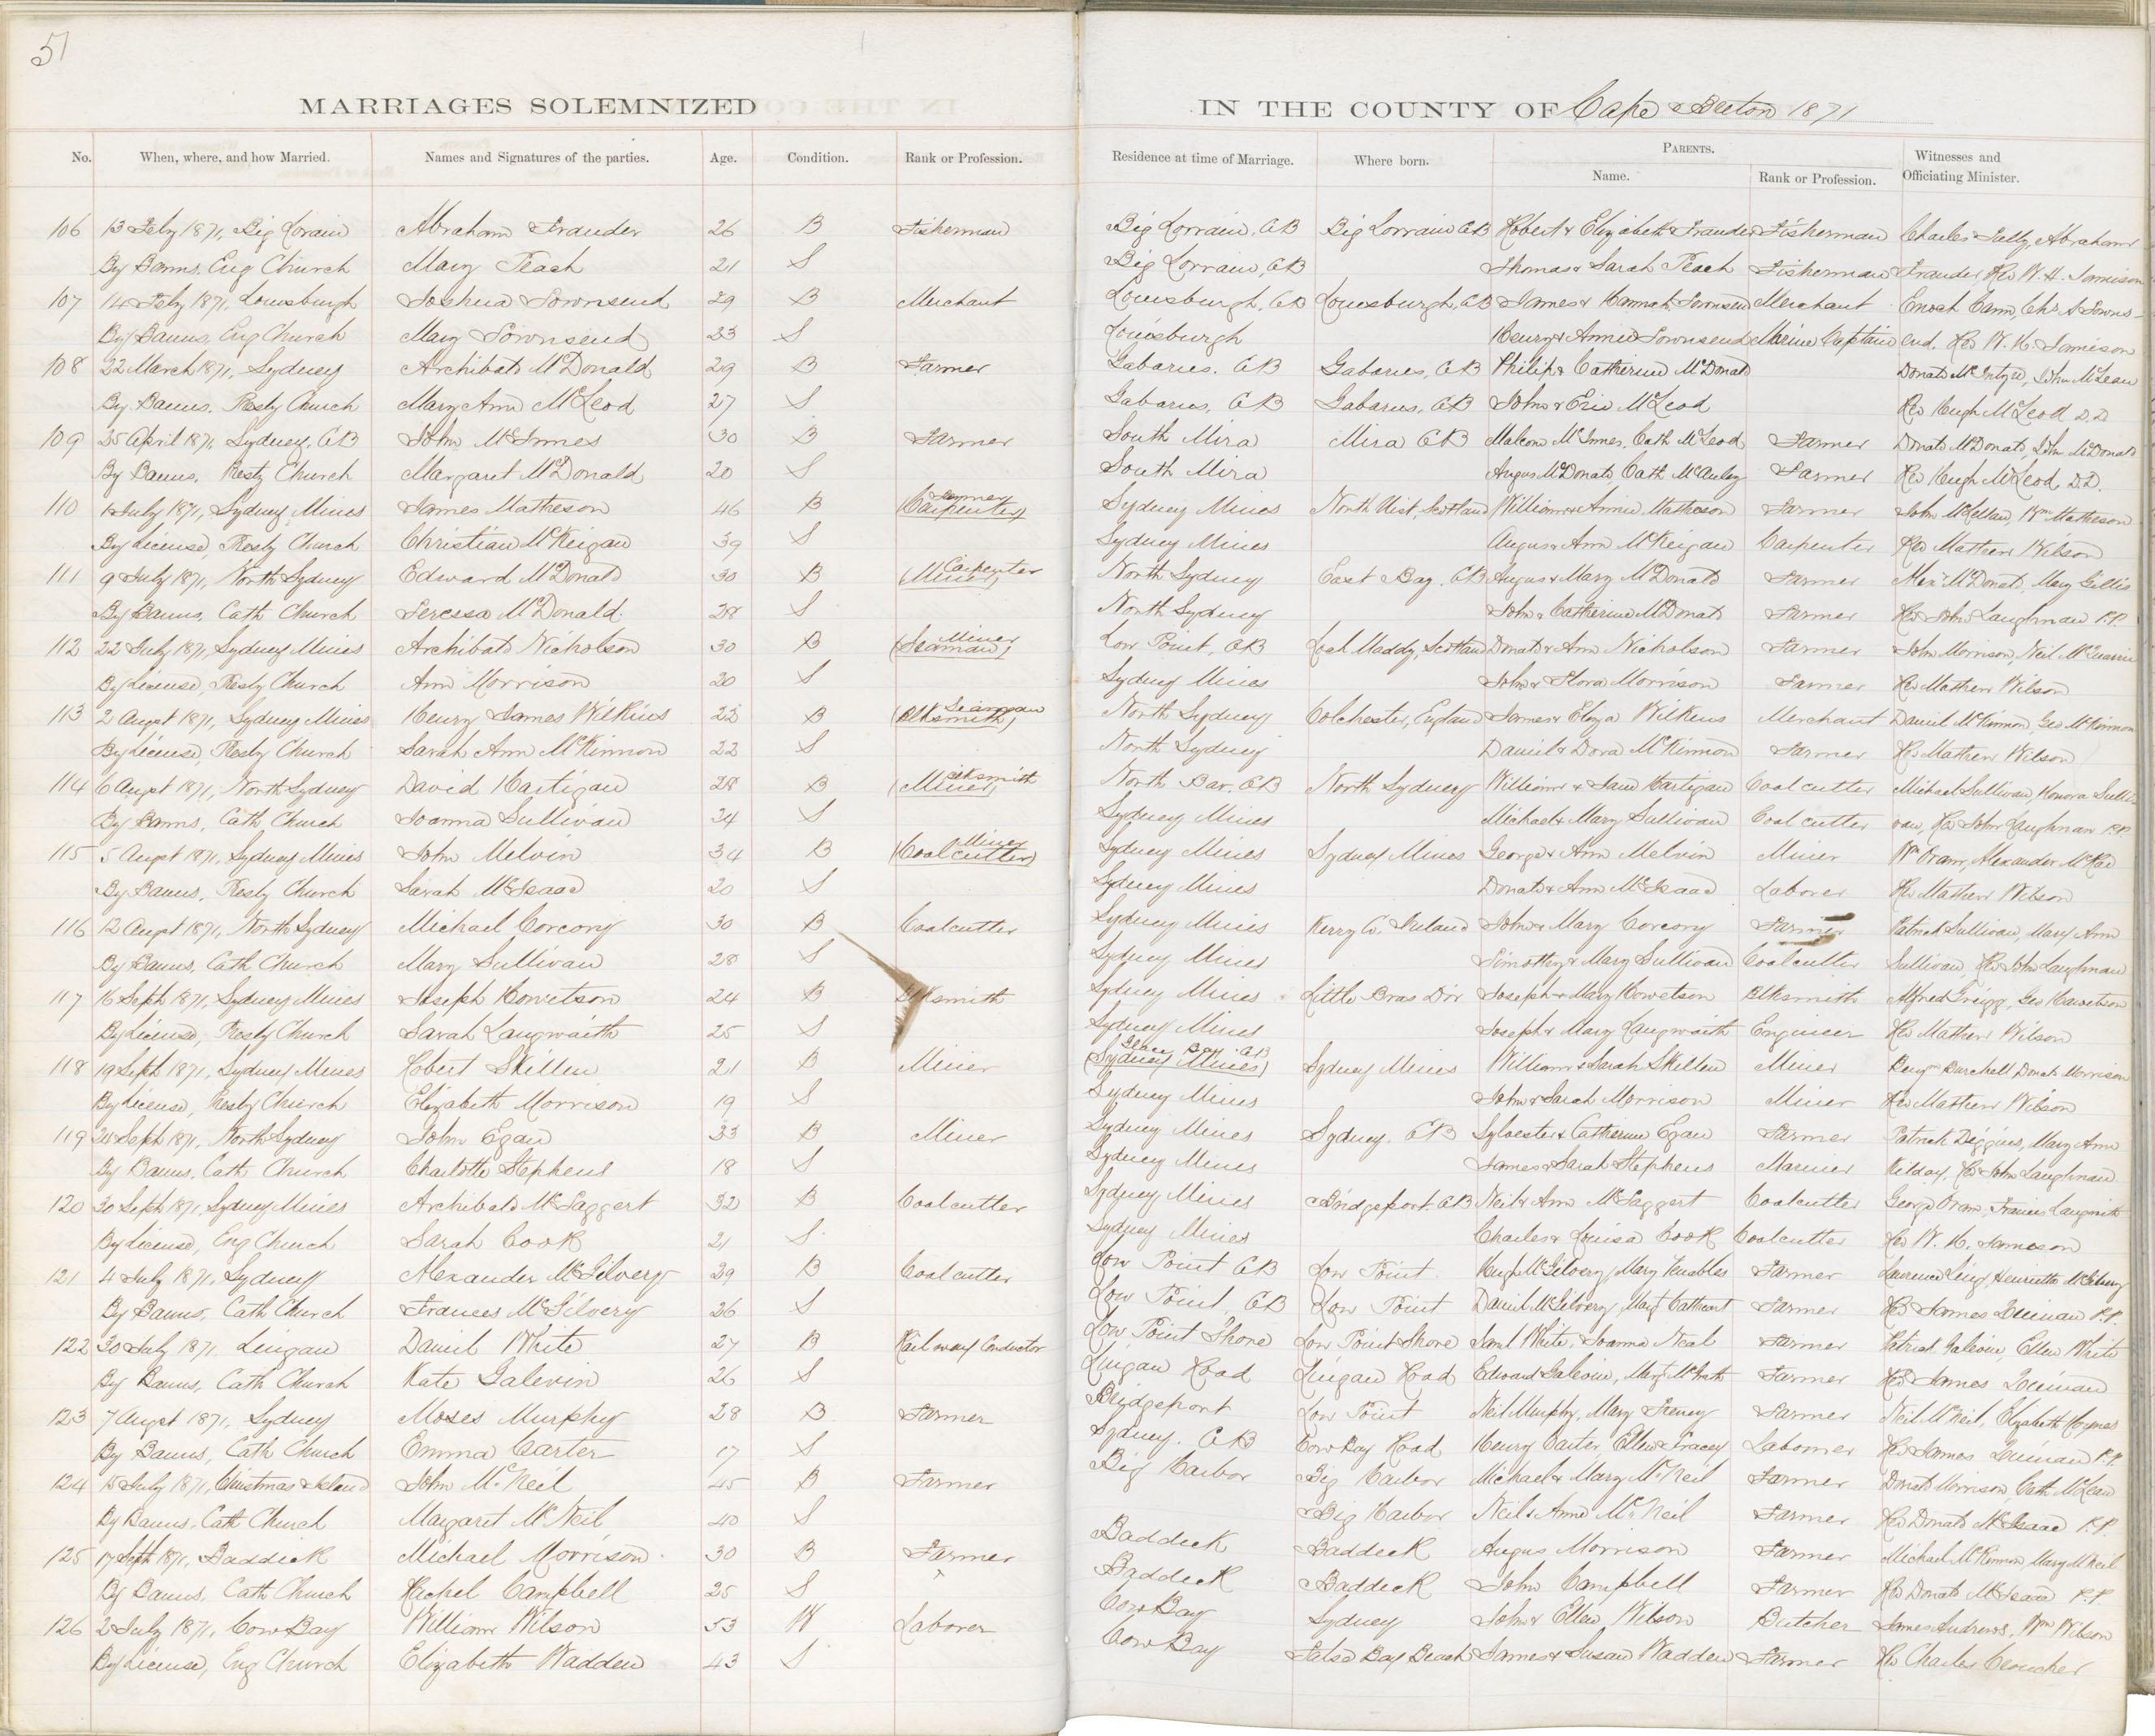 51
MARRIAGES SOLEMNIZED IN THE COUNTY OF Cape Breton 1871
No. When, where, and how Married. Names and Signatures of the parties. Age. Condition. Rank or Profession. Residence at time of Marriage. Where born. PARENTS. Name. Rank or Profession. Witnesses and Officiating Minister.
106 13 Feby 1871, Big Lorain Abraham Trauder 26 B Fisherman Big Lorrain, CB Big Lorrain CB Robert & Elizabeth Trauder Fisherman Charles Tully, Abraham
By Banns, Eng Church Mary Peach 21 S Big Lorrain, CB Thomas & Sarah Peach Fisherman Trauder, Rev W. H. Jamison
107 14 Feby 1871, Louisburgh Joshua Townsend 29 B Merchant Louisburgh, CB Louisburgh, CB James & Hannah Townsend Merchant Enoch Cann, Chs A Towns-
By Banns, Eng Church Mary Townsend 23 S Louisburgh Henry & Annie Townsend Marine Captain end, Rev W. H. Jamieson
108 22 March 1871, Sydney Archibald McDonald 29 B Farmer Gabarus, CB Gabarus, CB Philip & Catherine McDonald Donald McIntyre, John McLean
By Banns, Presby Church Mary Ann McLeod 27 S Gabarus, CB Gabarus, CB John & Erie McLeod Rev Hugh McLeod D.D
109 25 April 1871, Sydney, CB John McInnes 30 B Farmer South Mira Mira CB Malcom McInnes, Cath McLeod Farmer Donald McDonald, John McDonald
By Banns, Presby Church Margaret McDonald 20 S South Mira Angus McDonald, Cath McAuley Farmer Rev Hugh McLeod, D.D.
110 1 July 1871, Sydney Mines James Matheson 46 B Farmer (Carpenter) Sydney Mines North Uist, Scotland William & Annie Matheson Farmer John McLellan, Wm Matheson
By License, Presby Church Christian McKeigan 39 S Sydney Mines Angus & Ann McKeigan Carpenter Rev Mathew Wilson
111 9 July 1871, North Sydney Edward McDonald 30 B Carpenter (Miner) North Sydney East Bay, CB Angus & Mary McDonald Farmer Alexr McDonald, Mary Gillis
By Banns, Cath Church Teressa McDonald 28 S North Sydney John & Catherine McDonald Farmer Rev John Laughnan P.P.
112 22 July 1871, Sydney Mines Archibald Nicholson 30 B Miner (Seaman) Low Point, CB Loch Maddy, Scotland Donald & Ann Nicholson Farmer John Morrison, Neil McQuarrie
By License, Presby Church Ann Morrison 20 S Sydney Mines John & Flora Morrison Farmer Rev Mathew Wilson
113 2 Augst 1871, Sydney Mines Henry James Wilkins 22 B Seaman (Blksmith) North Sydney Colchester, England James & Eliza Wilkins Merchant Daniel McKinnon, Geo McKinnon
By License, Presby Church Sarah Ann McKinnon 22 S North Sydney Daniel & Dora McKinnon Farmer Rev Mathew Wilson
114 6 Augst 1871, North Sydney David Hartigan 28 B Blksmith (Miner) North Bar, CB North Sydney William & Jane Hartigan Coal cutter Michael Sullivan, Honora Sulli
By Banns, Cath Church Joanna Sullivan 34 S Sydney Mines Michael & Mary Sullivan Coal cutter van, Rev John Laughnan P.P.
115 5 Augst 1871, Sydney Mines John Melvin 34 B Miner (Coal cutter) Sydney Mines Sydney Mines George & Ann Melvin Miner Wm Oram, Alexander McRae
By Banns, Presby Church Sarah McIsaac 20 S Sydney Mines Donald & Ann McIsaac Laborer Rev Mathew Wilson
116 12 Augst 1871, North Sydney Michael Corcory 30 B Coalcutter Sydney Mines Kerry Co. Ireland John & Mary Corcory Farmer Patrick Sullivan, Mary Ann
By Banns, Cath Church Mary Sullivan 28 S Sydney Mines Timothy & Mary Sullivan Coalcutter Sullivan, Rev John Laughnan
117 16 Sept 1871, Sydney Mines Joseph Howetson 24 B Blksmith Sydney Mines Little Bras Dor Joseph & Mary Howetson Blksmith Alfred Greigg, Geo Hawetson
By License, Presby Church Sarah Langwaith 25 S Sydney Mines Joseph & Mary Langwaith Engineer Rev Mathew Wilson
118 19 Sept 1871, Sydney Mines Robert Skillen 21 B Miner Glace Bay CB (Sydney Mines) Sydney Mines William & Sarah Skillen Miner Benjn Burchell, Donald Morrison
By License, Presby Church Elizabeth Morrison 19 S Sydney Mines John & Sarah Morrison Miner Rev Mathew Wilson
119 24 Sept 1871, North Sydney John Egan 33 B Miner Sydney Mines Sydney, CB Sylvester & Catherine Egan Farmer Patrick Diggins, Mary Ann
By Banns, Cath Church Charlotte Stephens 18 S Sydney Mines James & Sarah Stephens Mariner Kilday, Rev John Laughnan
120 30 Sept 1871, Sydney Mines Archibald McTaggert 32 B Coalcutter Sydney Mines Bridgeport, CB Neil & Ann McTaggert Coalcutter George Oram, Francis Langwith
By License, Eng Church Sarah Cook 21 S Sydney Mines Charles & Louisa Cook Coalcutter Rev W. H. Jameson
121 4 July 1871, Sydney Alexander McGilvery 29 B Coal cutter Low Point CB Low Point Hugh McGilvery, Mary Venables Farmer Lawrence Ling, Henrietta McGilvery
By Banns, Cath Church Frances McGilvery 26 S Low Point, CB Low Point Daniel McGilvery, Mary Cathcart Farmer Rev James Quinan P.P.
122 30 July 1871, Lingan Daniel White 27 B Railway Conductor Low Point Shore Low Point Shore Saml White, Joanna Neal Farmer Patrick Galevin, Ellen White
By Banns, Cath Church Kate Galevin 26 S Lingan Road Lingan Road Edward Galevin, Mary McGrath Farmer Rev James Quinan
123 7 Augst 1871, Sydney Moses Murphy 28 B Farmer Bridgeport Low Point Neil Murphy, Mary Feeney Farmer Neil McNeil, Elizabeth Holmes
By Banns, Cath Church Emma Carter 17 S Sydney, CB Cow Bay Road Henry Carter, Ellen Tracey Laborer Rev James Quinan P.P.
124 15 July 1871, Christmas Island John McNeil 45 B Farmer Big Harbor Big Harbor Michael & Mary McNeil Farmer Donald Morrison, Cath McLean
By Banns, Cath Church Margaret McNeil 40 S Big Harbor Neil & Anne McNeil Farmer Rev Donald McIsaac P.P.
125 17 Sept 1871, Baddeck Michael Morrison 30 B Farmer Baddeck Baddeck Angus Morrison Farmer Michael McKinnon, Mary McNeil
By Banns, Cath Church Rachel Campbell 25 S Baddeck Baddeck John Campbell Farmer Rev Donald McIsaac P.P.
126 2 July 1871, Cow Bay William Wilson 53 W Laborer Cow Bay Sydney John & Ellen Wilson Butcher James Andrews, Wm Wilson
By License, Eng Church Elizabeth Wadden 43 S Cow Bay False Bay Beach James & Susan Wadden Farmer Rev Charles Croucher